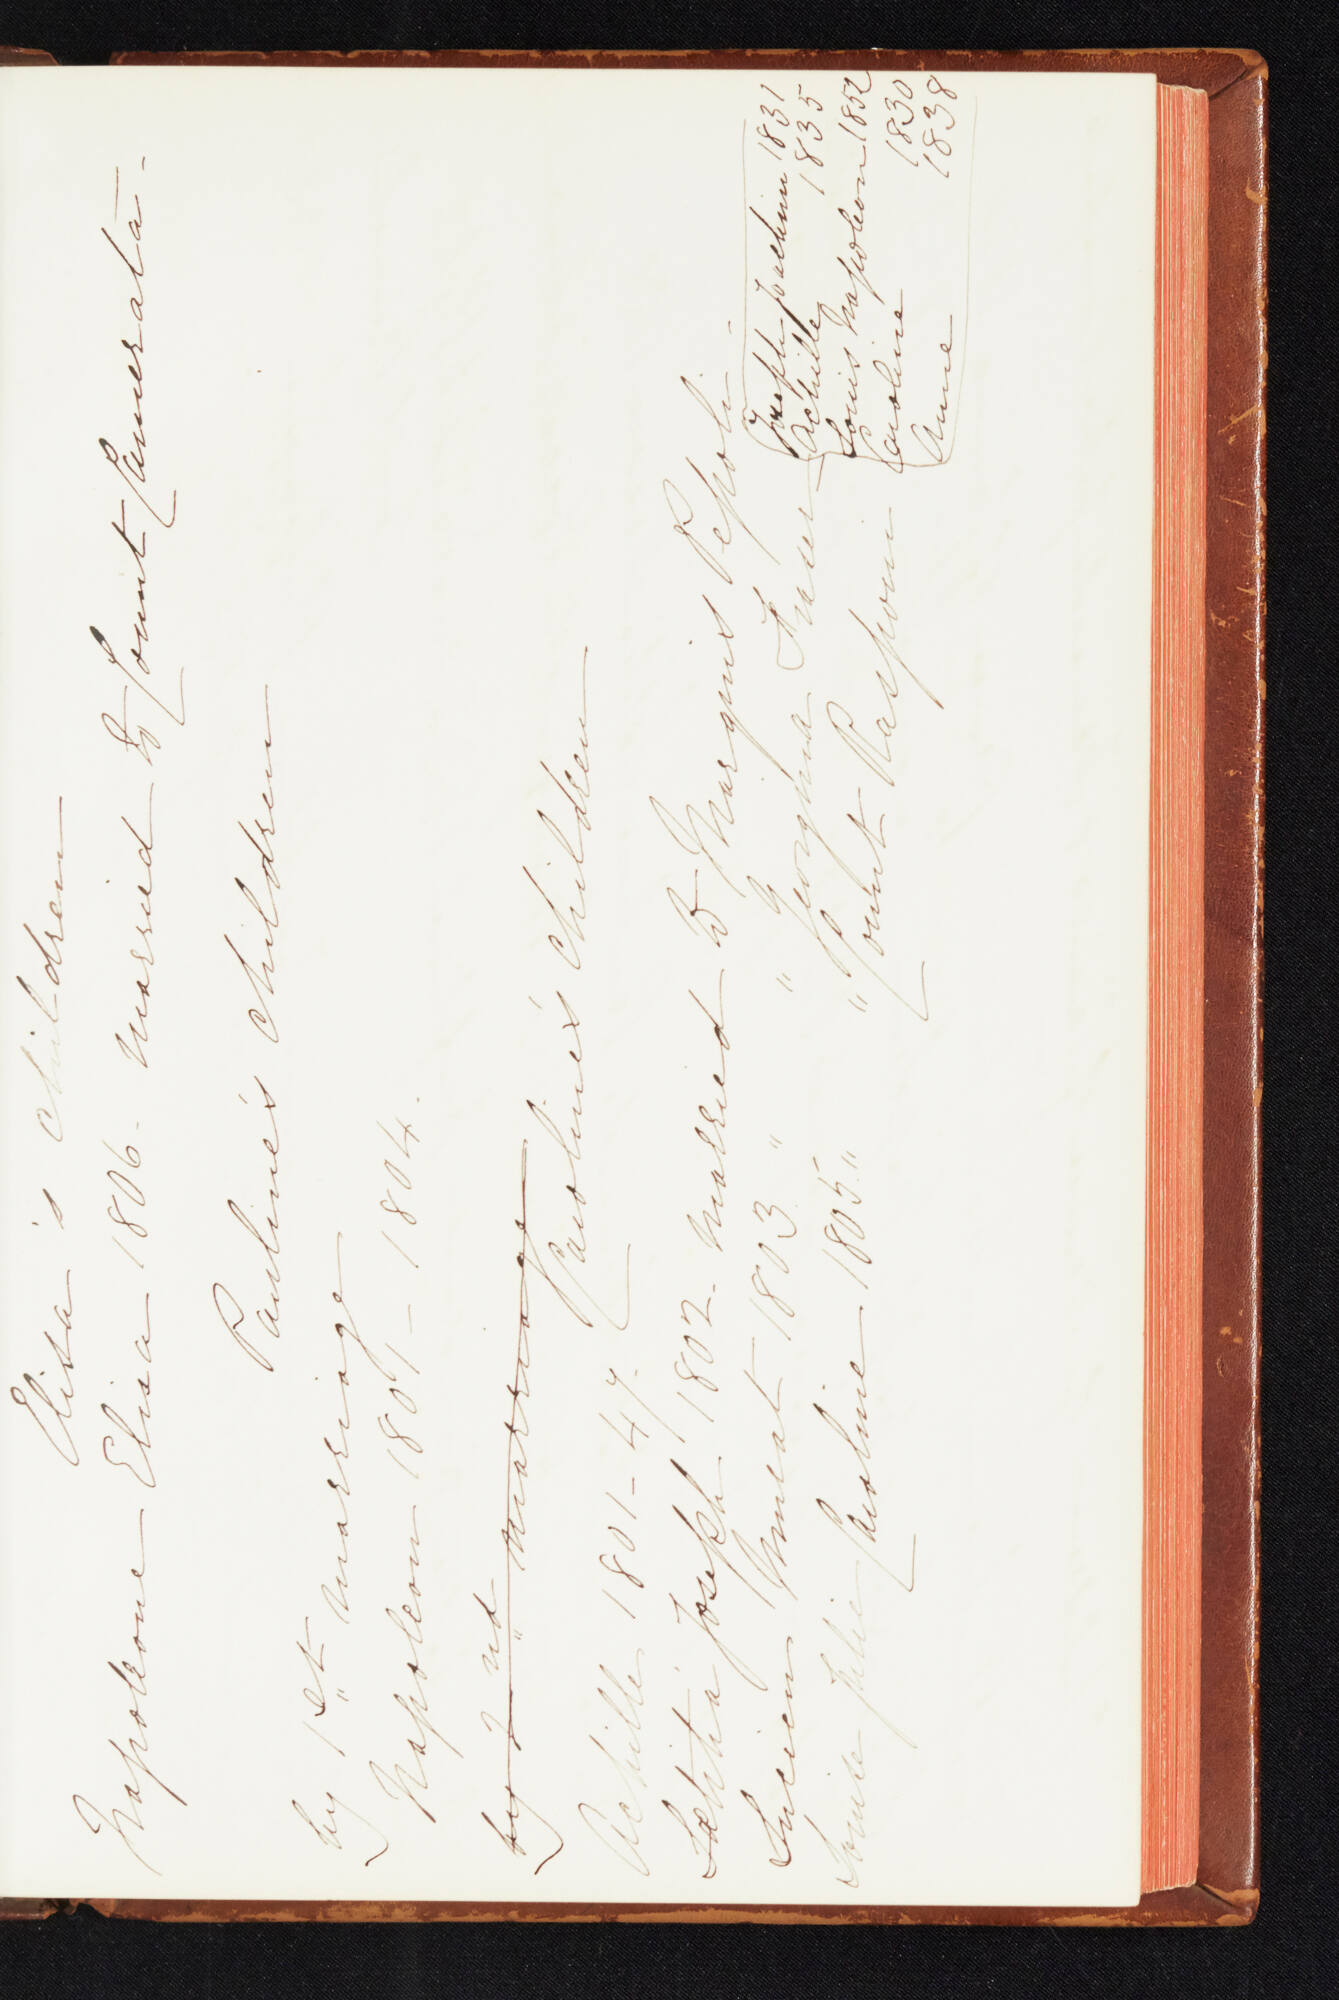 Elisa's children
Napoleone Elisa 1806. married to Count Camerata.
Pauline's children
by 1st marriage
Napoleon 1801 - 1804.
by 2nd marriage
Caroline's children
Achille 1801 - 47.
Lætitia Joseph 1802. married to Marquis Pepoli
Lucien Murat 1803 " " Georgina Fraser
Louise Julie Caroline 1805 " " Count Rasponi
Joseph Joachim 1831
Achille 1835
Louis Napoleon 1852
Caroline 1830
Anne 1838